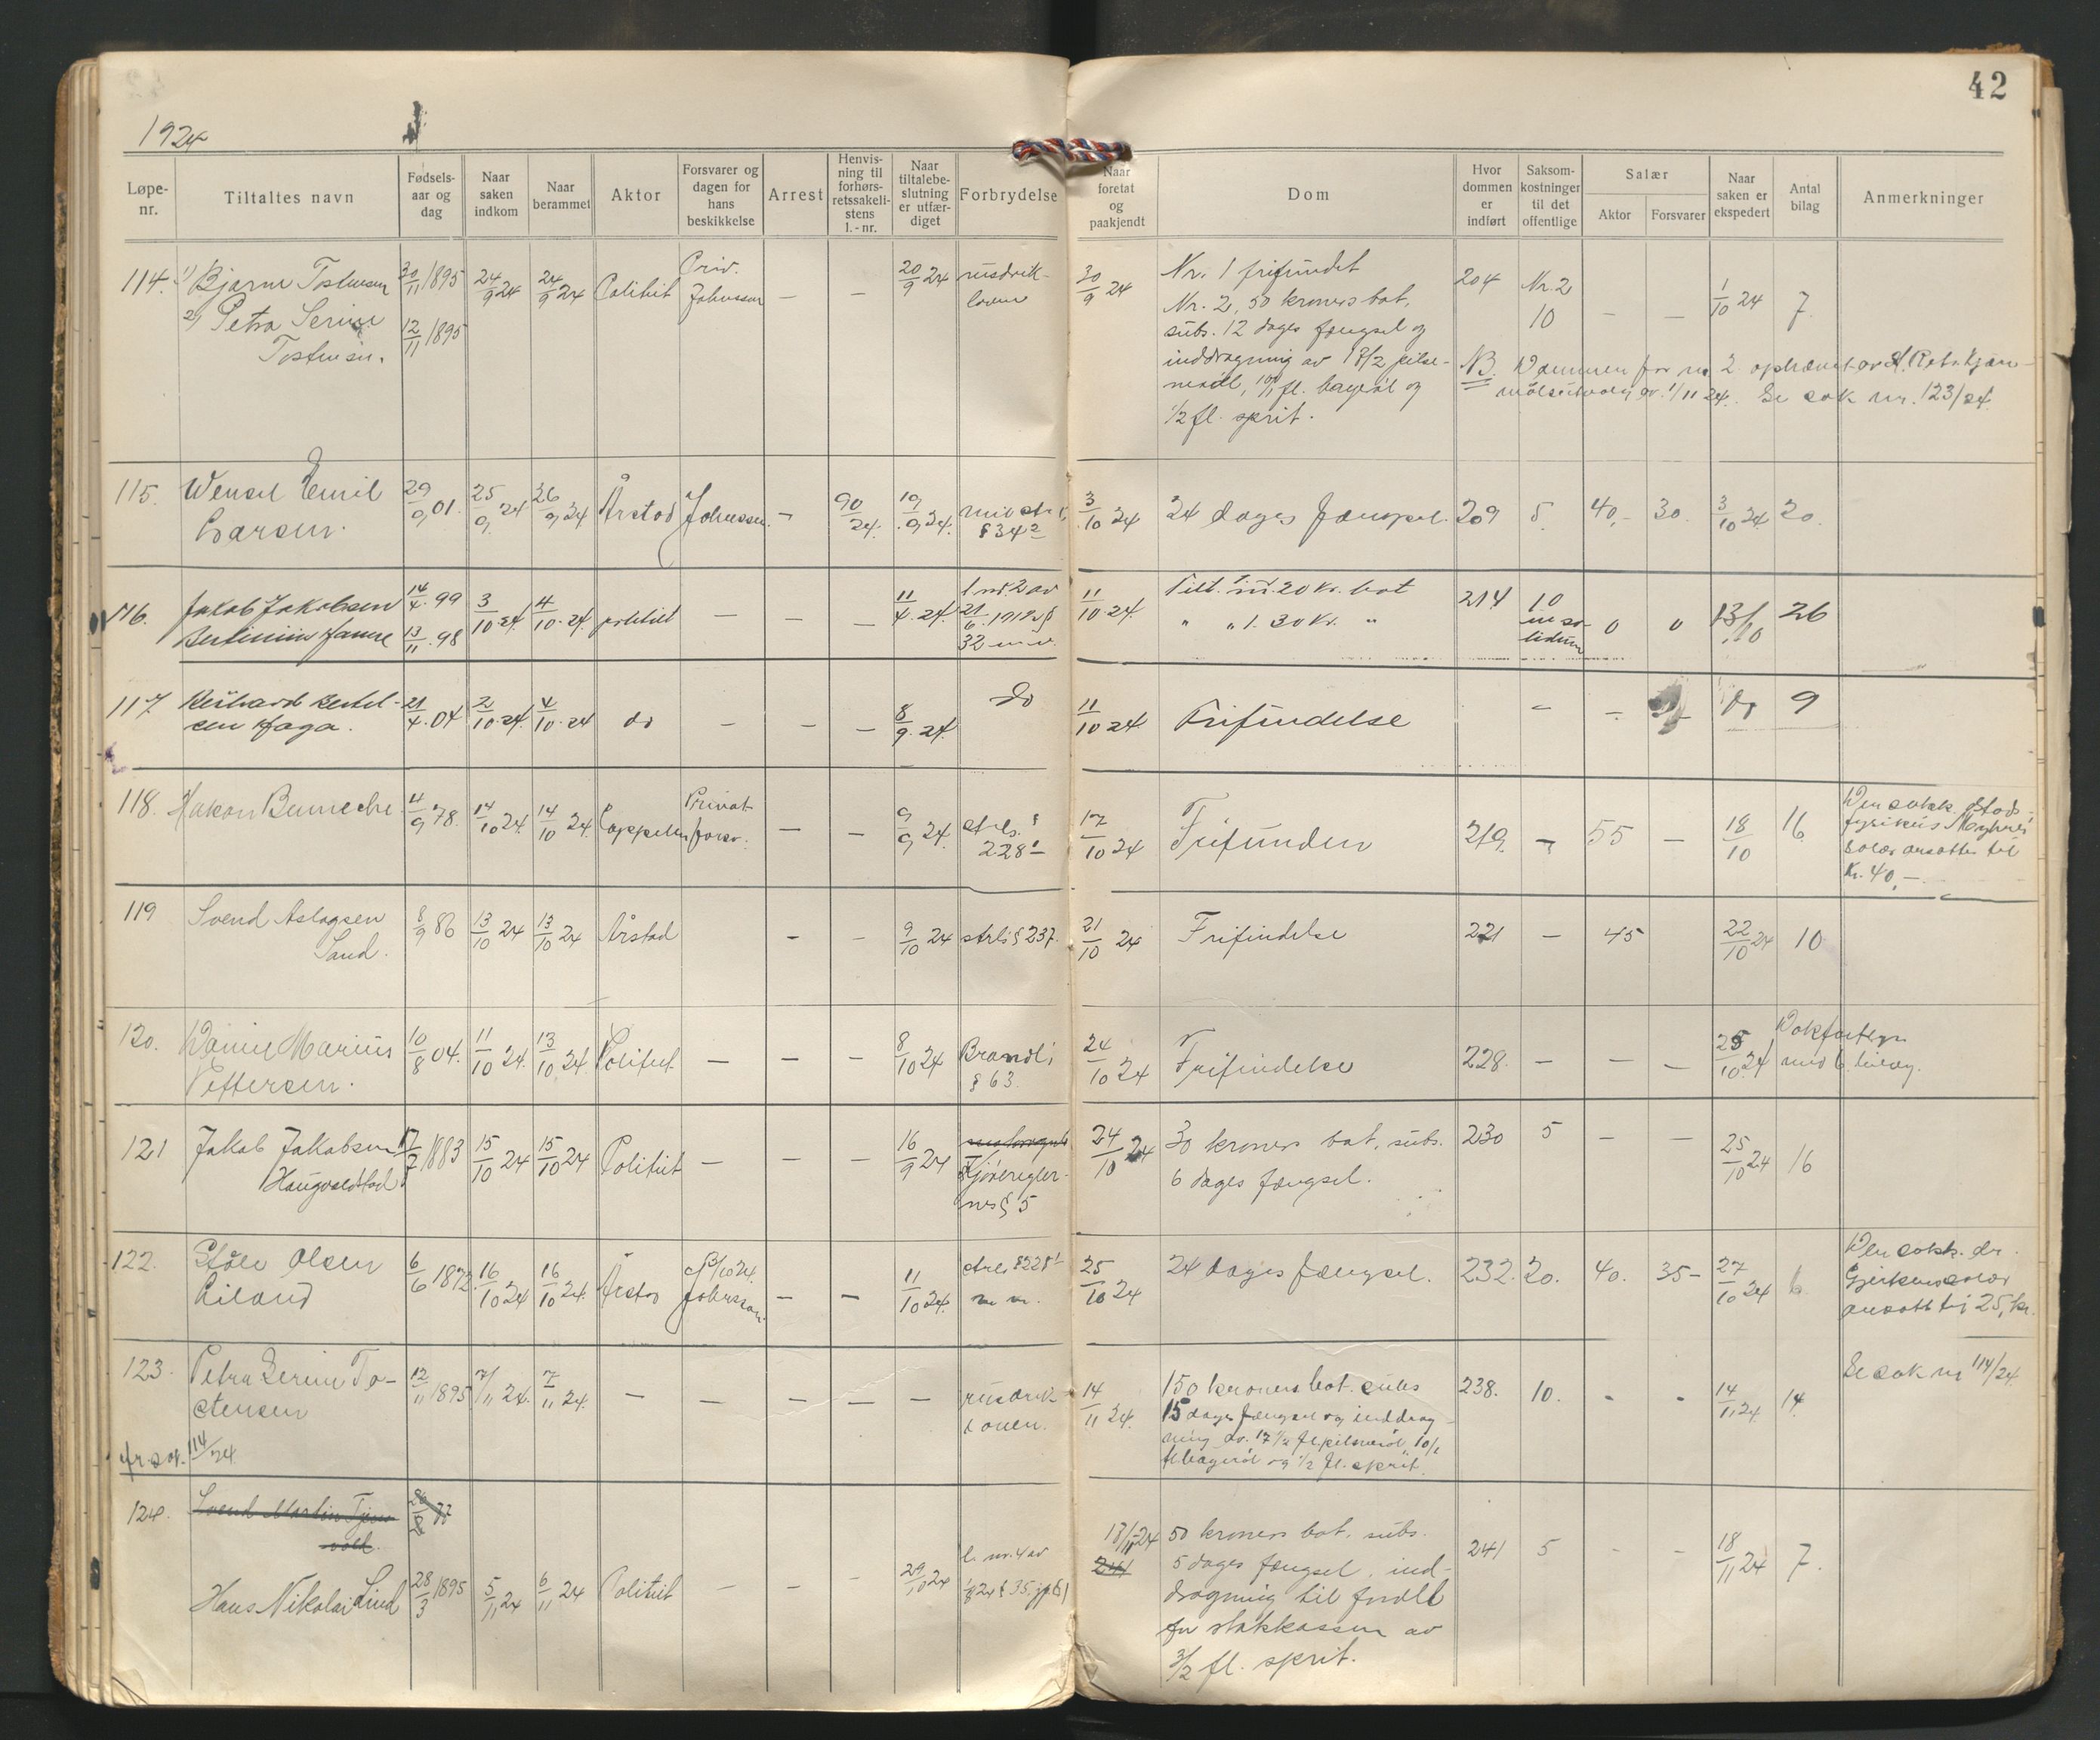 42
1924
Løpe-nr.
Tiltaltes navn
Fødsels-aar og dag
Naar saken indkom
Naar berammet
Aktor
Forsvarer og dagen for hans beskikkelse
Arrest
Henvis-ning til forhørs-retssakeli-stens l.-nr.
Naar tiltalebe-slutning er utfær-diget
Forbrydelse
Naar foretat og paakjendt
Dom
Hvor dommen er indført
Saksom-kostninger til det offentlige
Salær
Aktor
Forsvarer
Naar saken er ekspedert
Antal bilag
Anmerkninger
114. 1) Bjarne Tostensen 30/11 1895 24/9 24 24/9 24 Politiet Priv. Johnssen — — 20/9 24 rusdrik-
2) Petra Serine 12/11 1895 loven
Tostensen.
30/9 24 Nr. 1 frifundet 204 Nr. 2 10 — — 1/10 24 7.
Nr. 2, 50 kroners bot,
subs. 12 dages fængsel og
inddragning av 17/2 pilse-
nerøl, 10/1 fl. bayerøl og
1/2 fl. sprit.
NB. Dommen for nr 2 ophævet av H. Rets kjære-
målsutvalg av 1/11 24. Se sak nr. 123/24
115. Wensel Emil 29/9 01. 25/9 24 26/9 24 Årstad Johnssen. — 90/24. 19/9 24. mil str l.
Larsen. § 34 2
3/10 24 24 dages fængsel. 209 5. 40,- 30. 3/10 24 20.
116. Jakob Jakobsen 14/4. 99 3/10. 24. 4/10. 24. politiet — — — 11/4. 24. l. nr. 2 av
13/11. 98 21/6. 1912 §
32 m. v.
11/10. 24. Tilt. 20 kr. bot 214 10 in so-lidum 0 0 13/10 26
" " 1. 30 Kr. "
117 21/4. 04 2/10. 24. 4/10. 24 do — — — 8/9. 24. do
sen Haga.
11/10 24. Frifindelse — — — do 9
118. Hakon 4/9 78. 14/10 24. 14/10 24. Cappelen Privat forsv. — — 9/9 24. strl. §
228 1
17/10 24 Frifunden 219. — 55 — 18/10 16. Den sakk. Stads-
fysikus
salær ansattes til
kr. 40,—
119 Svend Aslagsen 8/9 86 13/10 24 13/10 24 Årstad — — 9/10 24 strl § 237.
Sand.
21/10 24 Frifindelse 221 — 45 22/10 24 10
120. Marius 10/8 04. 11/10 24. 13/10 24. Politiet — — — 8/10 24 Brandl.
Pettersen. § 63.
24/10 24 Frifindelse 228. — — — 25/10 24 Dokfortegn
med 6 bilag.
121 Jakob Jakobsen 17/7 1883 15/10 24 15/10 24 Politiet — — — 16/9 24
Haugvaldstad Kjøreregler-
nes § 5
24/10 24 30 kroners bot, subs. 230 5 — — 25/10 24 16
6 dages fængsel.
122. Ståle Olsen 6/6 1872. 16/10 24 16/10 24. Årstad Johnssen. — — 11/10 24. strl § 228 1
Eiland m. m.
25/10 24 24 dages fængsel. 232. 20. 40. 35- 27/10 24 6 Den sakk. dr.
salær
ansatt til 25, kr.
123. Petra Serine To- 12/11 1895 7/11 24. 7/11 24. — — — — — rusdrik
stensen loven.
jfr. sak. 114/24
14/11 24. 150 kroners bot. subs 238. 10. - - 14/11 24 14. Se sak nr 114/24.
15 dages fængsel og inddrag-
ning av. 17 1/2 fl. pilsnerøl, 10/1
fl. bayerøl og 1/2 fl. sprit.
124. Svend Martin
Hans Nikolai Lind 28/3 1895 5/11 24 6/11 24 Politiet — — — 29/10 24 l. nr. 4 av
1/8 24 § 35
13/11-24 50 kroners bot, subs. 241 5 - - 18/11 24 7.
5 dages fængsel, ind-
dragning til fordel
for statskassen av
3/2 fl. sprit.